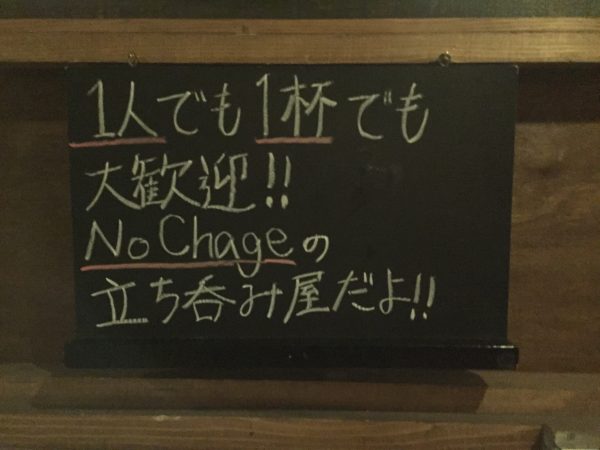 1人でも1杯でも
大歓迎!!
No Chageの
立ち呑み屋だよ!!